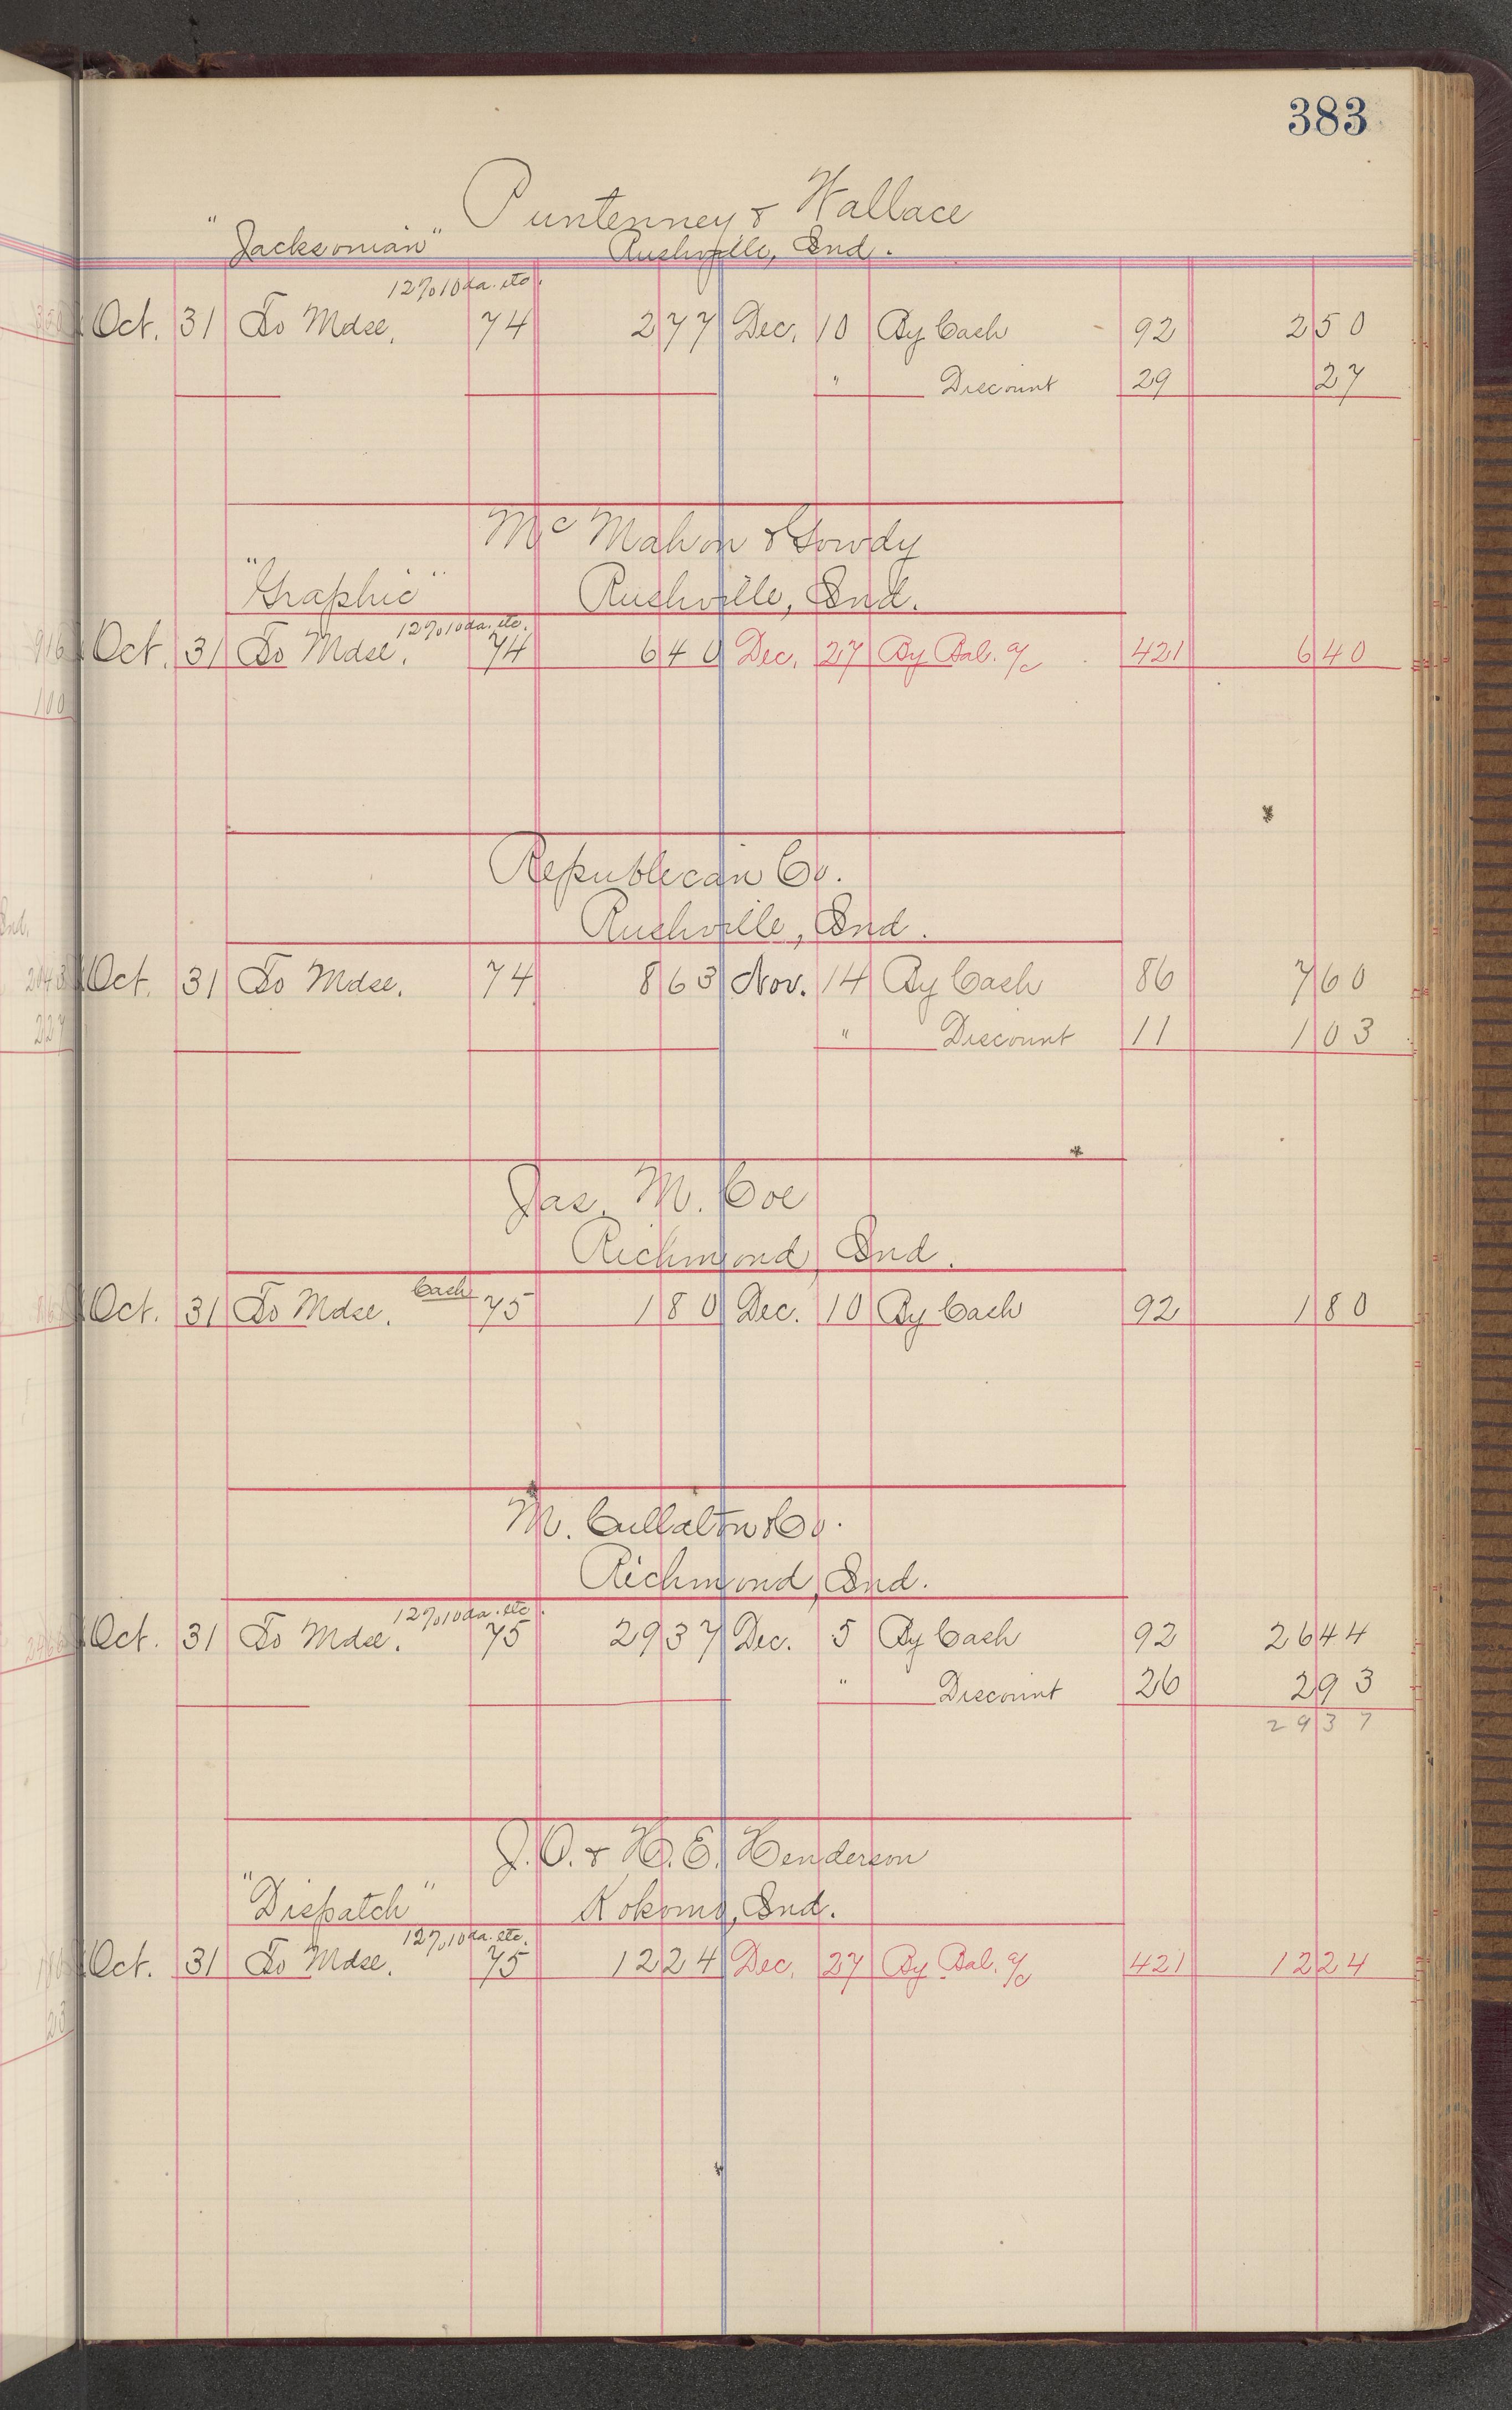 383
Puntenney & Wallace
"Jacksonian" Rushville, Ind.
12% 10 da. etc.
Oct. 31 To Mdse. 74 277 Dec. 10 By Cash 92 250
" Discount 29 27
McMahon & Gowdy
"Graphic" Rushville, Ind.
12% 10 da. etc.
Oct. 31 To Mdse. 74 640 Dec. 27 By Bal. a/c 421 640
Republican Co.
Rushville, Ind.
Oct. 31 To Mdse. 74 863 Nov. 14 By Cash 86 760
" Discount 11 103
Jas. M. Coe
Richmond, Ind.
Cash
Oct. 31 To Mdse. 75 180 Dec. 10 By Cash 92 180
M. Cullaton & Co.
Richmond, Ind.
12% 10 da. etc.
Oct. 31 To Mdse. 75 2937 Dec. 5 By Cash 92 2644
" Discount 26 293
2937
J.O. & H.E. Henderson
"Dispatch" Kokomo, Ind.
12% 10 da. etc.
Oct. 31 To Mdse. 75 1224 Dec. 27 By Bal. a/c 421 1224